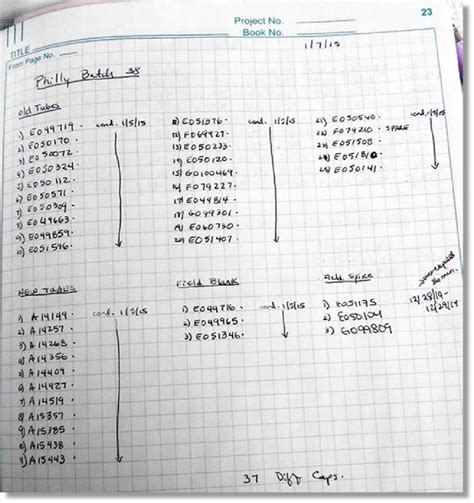 23
Project No.
Book No.
TITLE
From Page No.
1/7/15
Philly Batch 38
Old Tubes
1) E049719 · cond. 1/5/15
2) E050170 ·
3) E050072 ·
4) E050324 ·
5) E050112 ·
6) E050571 ·
7) E050309 ·
8) E049663 ·
9) E049859 ·
10) E051596 ·
11) E051376 · cond. 1/5/15
12) F069927 ·
13) E050233 ·
14) E050120 ·
15) G0100469 ·
16) F079227 ·
17) E049814 ·
18) G099301 ·
19) E060730 ·
20) E051407 ·
21) E050540 · cond. 1/5/15
22) F079210 · SPARE
23) E051508 ·
24) E051810 ·
25) E050141 ·
NEW TUBES
1) A14149 · cond. 1/5/15
2) A14257 ·
3) A14268 ·
4) A14356 ·
5) A14409 ·
6) A14427 ·
7) A14519 ·
8) A15357 ·
9) A15385 ·
10) A15438 ·
11) A15443 ·
Field Blank
1) E049716 · cond. 1/5/15
2) E049965 ·
3) E051346 ·
Field Spike
1) E051195
2) E050104
3) G099809
12/28/14-
12/29/14
37 Diff Caps.